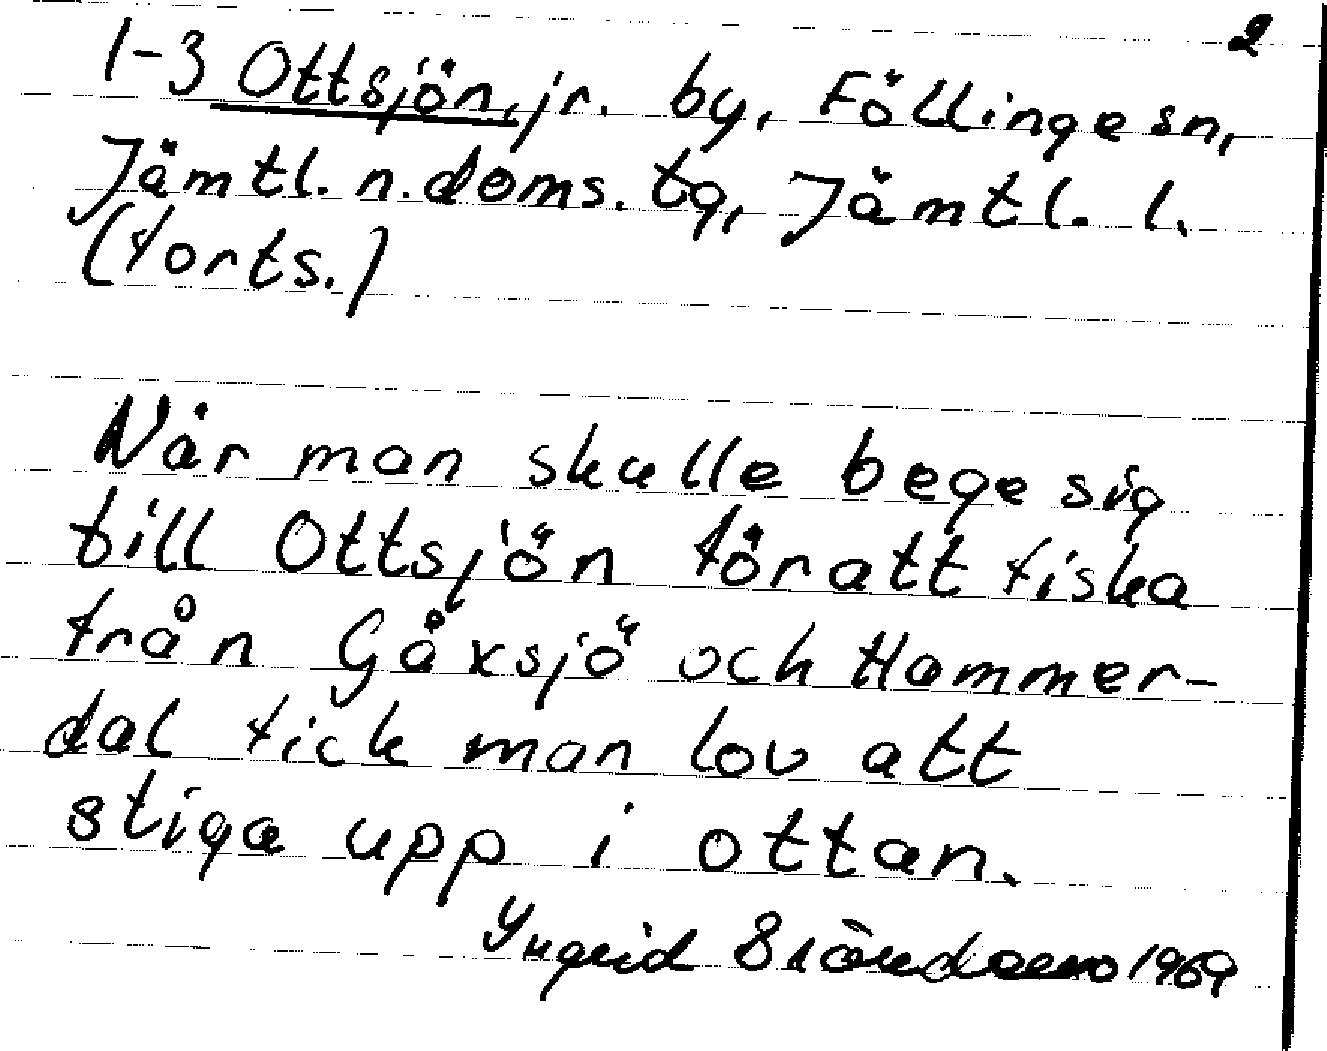 2
1-3 Ottsjön, jr. by, Föllinge sn,
Jämtl. n. doms. tg, Jämtl. l.
(forts.)
När man skulle bege sig
till Ottsjön för att fiska
från Gåxsjö och Hammer-
dal fick man lov att
stiga upp i ottan.
Yngrid 1969